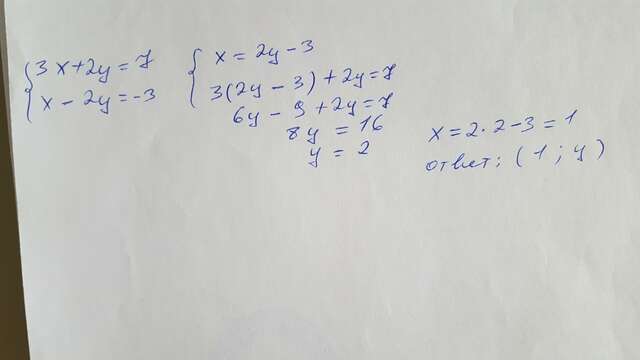 3x + 2y = 7
x - 2y = -3
x = 2y - 3
3(2y - 3) + 2y = 7
6y - 9 + 2y = 7
8y = 16
y = 2
x = 2 · 2 - 3 = 1
ответ: (1; y)